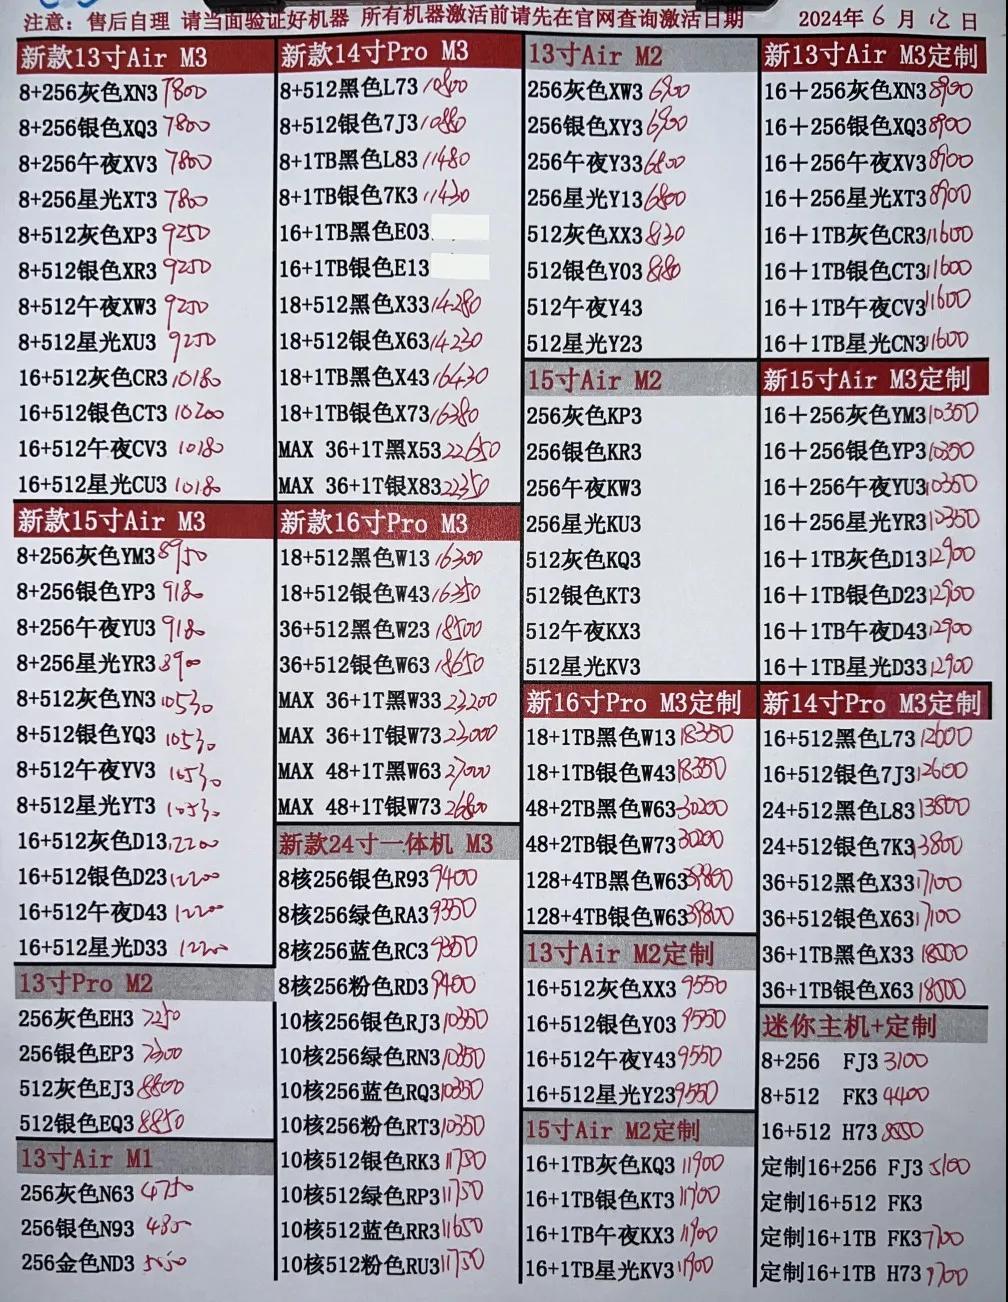 注意: 售后自理 请当面验证好机器 所有机器激活前请先在官网查询激活日期
2024年6月12日
新款13寸Air M3
8+256灰色XN3 7800
8+256银色XQ3 7800
8+256午夜XV3 7800
8+256星光XT3 7800
8+512灰色XP3 9250
8+512银色XR3 9250
8+512午夜XW3 9250
8+512星光XU3 9250
16+512灰色CR3 10180
16+512银色CT3 10200
16+512午夜CV3 10180
16+512星光CU3 10180
新款15寸Air M3
8+256灰色YM3 8950
8+256银色YP3 9180
8+256午夜YU3 9180
8+256星光YR3 8900
8+512灰色YN3 10530
8+512银色YQ3 10530
8+512午夜YV3 10530
8+512星光YT3 10530
16+512灰色D13 12200
16+512银色D23 12200
16+512午夜D43 12200
16+512星光D33 12200
13寸Pro M2
256灰色EH3 7250
256银色EP3 7300
512灰色EJ3 8800
512银色EQ3 8850
13寸Air M1
256灰色N63 4750
256银色N93
256金色ND3 5050
新款14寸Pro M3
8+512黑色L73 10800
8+512银色7J3 10880
8+1TB黑色L83 11480
8+1TB银色7K3 11430
16+1TB黑色E03
16+1TB银色E13
18+512黑色X33 14280
18+512银色X63 14230
18+1TB黑色X43 16430
18+1TB银色X73 16380
MAX 36+1T黑X53 22650
MAX 36+1T银X83 22350
新款16寸Pro M3
18+512黑色W13 16300
18+512银色W43 16350
36+512黑色W23 18500
36+512银色W63 18650
MAX 36+1T黑W33 23200
MAX 36+1T银W73 23000
MAX 48+1T黑W63 27000
MAX 48+1T银W73 26800
新款24寸一体机 M3
8核256银色R93 9400
8核256绿色RA3 9350
8核256蓝色RC3 9350
8核256粉色RD3 9400
10核256银色RJ3 10350
10核256绿色RN3 10350
10核256蓝色RQ3 10350
10核256粉色RT3 10350
10核512银色RK3 11750
10核512绿色RP3 11750
10核512蓝色RR3 11650
10核512粉色RU3 11750
13寸Air M2
256灰色XW3 6900
256银色XY3 6900
256午夜Y33 6800
256星光Y13 6800
512灰色XX3 830
512银色Y03 8180
512午夜Y43
512星光Y23
15寸Air M2
256灰色KP3
256银色KR3
256午夜KW3
256星光KU3
512灰色KQ3
512银色KT3
512午夜KX3
512星光KV3
新16寸Pro M3定制
18+1TB黑色W13 18350
18+1TB银色W43 18350
48+2TB黑色W63 30200
48+2TB银色W73 30200
128+4TB黑色W63 39800
128+4TB银色W63 39800
13寸Air M2定制
16+512灰色XX3 9550
16+512银色Y03 9550
16+512午夜Y43 9550
16+512星光Y23 9550
15寸Air M2定制
16+1TB灰色KQ3 11900
16+1TB银色KT3 11900
16+1TB午夜KX3 11900
16+1TB星光KV3 11900
新13寸Air M3定制
16+256灰色XN3 8900
16+256银色XQ3 8900
16+256午夜XV3 8900
16+256星光XT3 8900
16+1TB灰色CR3 11600
16+1TB银色CT3 11600
16+1TB午夜CV3 11600
16+1TB星光CN3 11600
新15寸Air M3定制
16+256灰色YM3 10350
16+256银色YP3 10350
16+256午夜YU3 10350
16+256星光YR3 10350
16+1TB灰色D13 12900
16+1TB银色D23 12900
16+1TB午夜D43 12900
16+1TB星光D33 12900
新14寸Pro M3定制
16+512黑色L73 12600
16+512银色7J3 12600
24+512黑色L83 13800
24+512银色7K3 13800
36+512黑色X33 17100
36+512银色X63 17100
36+1TB黑色X33 18000
36+1TB银色X63 18000
迷你主机+定制
8+256 FJ3 3100
8+512 FK3 4400
16+512 H73 8550
定制16+256 FJ3 5100
定制16+512 FK3
定制16+1TB FK3 7700
定制16+1TB H73